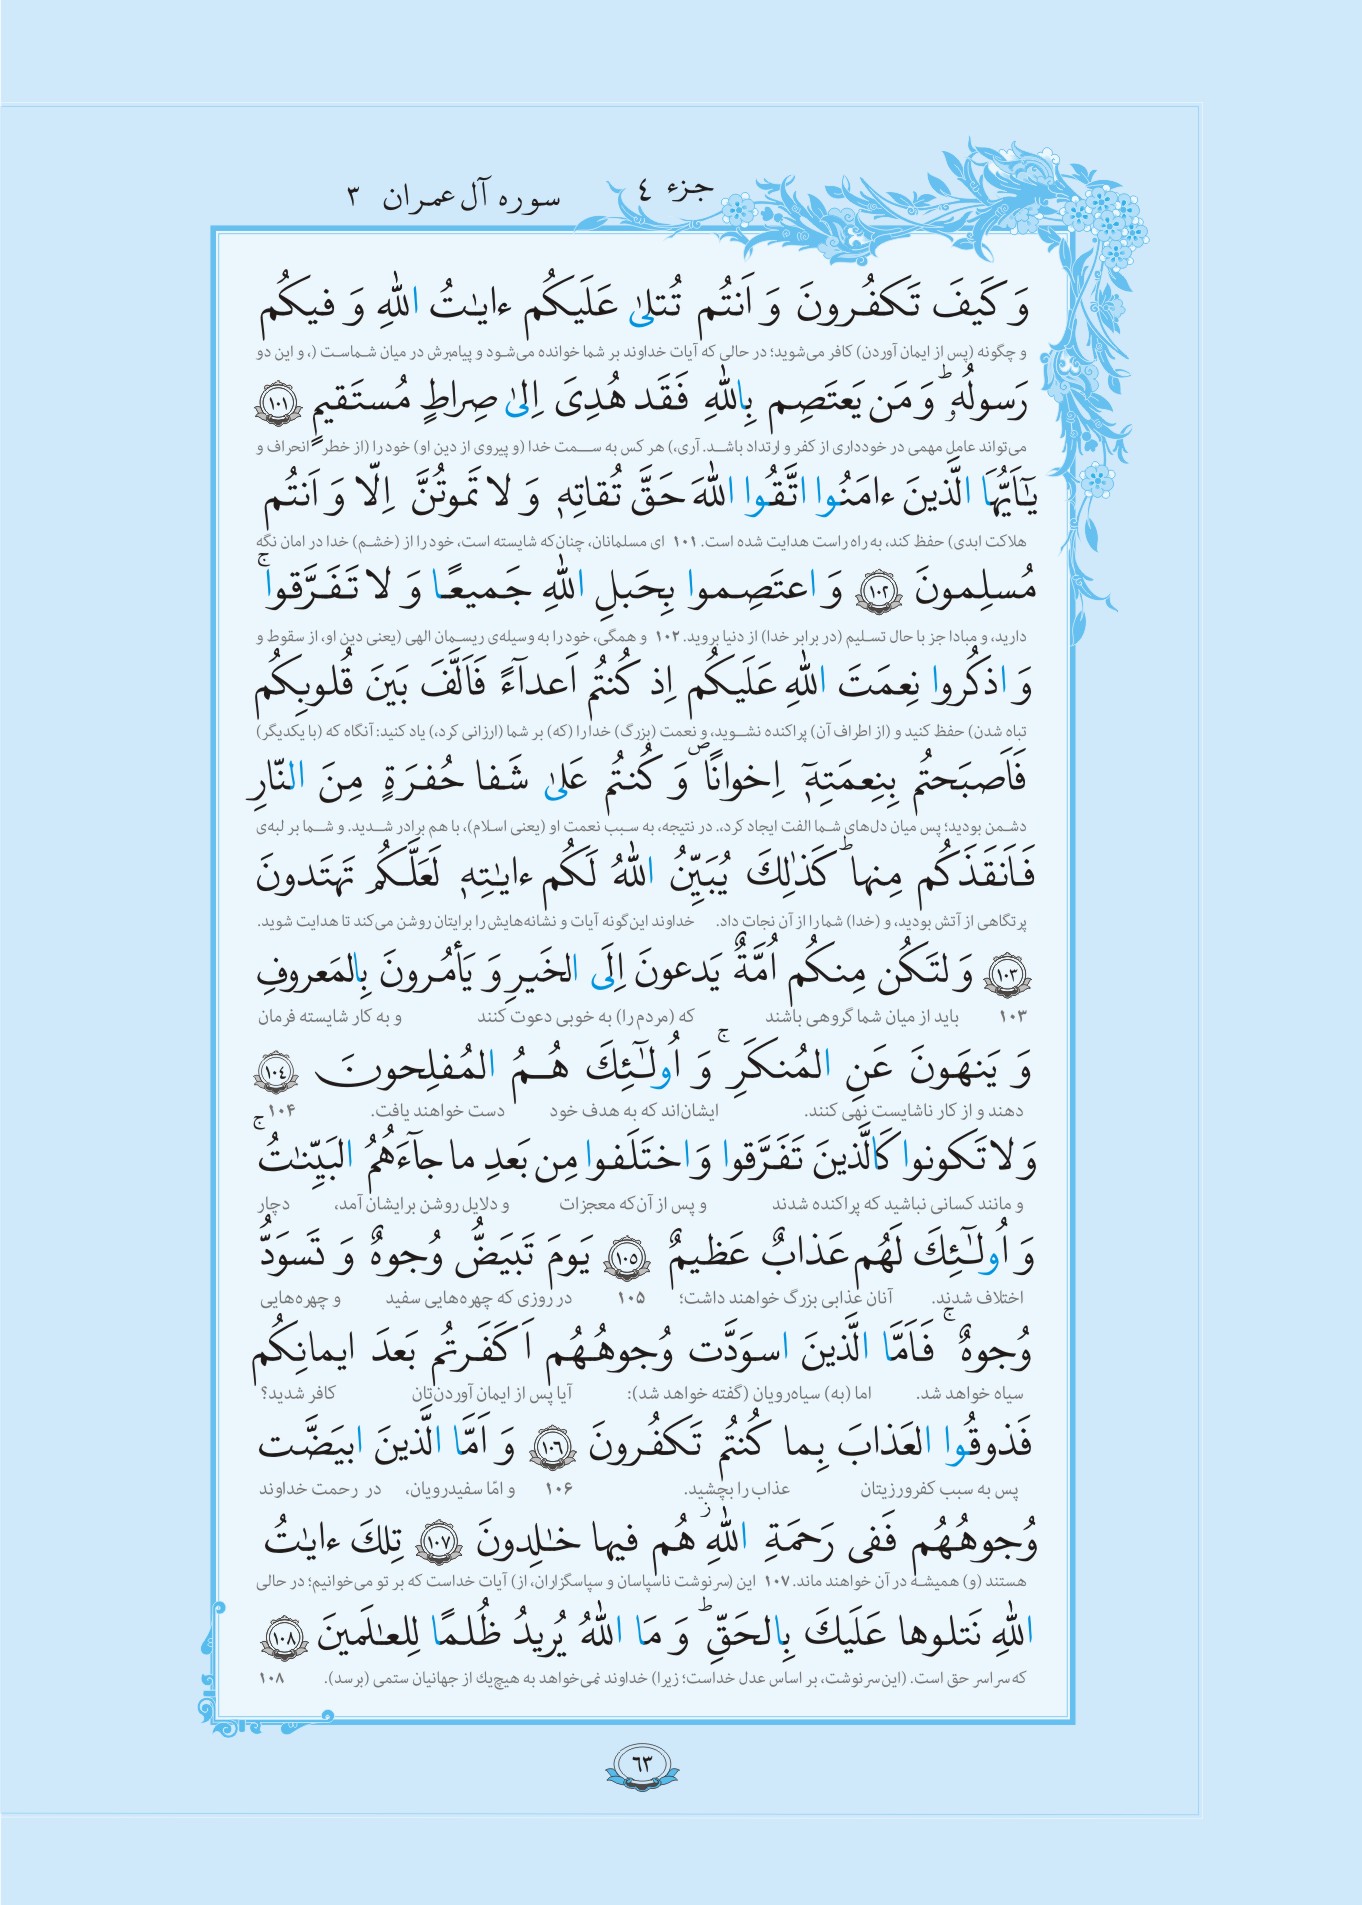 جزء ٤
سوره آل عمران ٣
وَ كَيفَ تَكفُرونَ وَ اَنتُم تُتلىٰ عَلَيكُم ءايٰتُ اللّٰهِ وَ فيكُم
و چگونه (پس از ایمان آوردن) کافر می‌شوید؛ در حالی که آیات خداوند بر شما خوانده می‌شود و پیامبرش در میان شماست (، و این دو
رَسولُهٗ ۗ وَ مَن يَعتَصِم بِاللّٰهِ فَقَد هُدِىَ اِلىٰ صِراطٍ مُستَقيمٍ ﴿١٠١﴾
می‌تواند عامل مهمی در خودداری از کفر و ارتداد باشد. آری،) هر کس به سمت خدا (و پیروی از دین او) خود را (از خطر انحراف و
يٰٓاَيُّهَا الَّذينَ ءامَنُوا اتَّقُوا اللّٰهَ حَقَّ تُقاتِهٖ وَ لا تَموتُنَّ اِلّا وَ اَنتُم
هلاکت ابدی) حفظ کند، به راه راست هدایت شده است. ۱۰۱ ای مسلمانان، چنان‌که شایسته است، خود را از (خشم) خدا در امان نگه
مُسلِمونَ ﴿١٠٢﴾ وَ اعتَصِموا بِحَبلِ اللّٰهِ جَميعًا وَ لا تَفَرَّقوا ۚ
دارید، و مبادا جز با حال تسلیم (در برابر خدا) از دنیا بروید. ۱۰۲ و همگی، خود را به وسیله‌ی ریسمان الهی (یعنی دین او، از سقوط و
وَ اذكُروا نِعمَتَ اللّٰهِ عَلَيكُم اِذ كُنتُم اَعدآءً فَاَلَّفَ بَينَ قُلوبِكُم
تباه شدن) حفظ کنید و (از اطراف آن) پراکنده نشوید، و نعمت (بزرگ) خدا را (که) بر شما (ارزانی کرد،) یاد کنید: آنگاه که (با یکدیگر)
فَاَصبَحتُم بِنِعمَتِهٖٓ اِخوانًا ۖ وَ كُنتُم عَلىٰ شَفا حُفرَةٍ مِنَ النّارِ
دشمن بودید؛ پس میان دل‌های شما الفت ایجاد کرد،. در نتیجه، به سبب نعمت او (یعنی اسلام)، با هم برادر شدید. و شما بر لبه‌ی
فَاَنقَذَكُم مِنها ۗ كَذٰلِكَ يُبَيِّنُ اللّٰهُ لَكُم ءايٰتِهٖ لَعَلَّكُم تَهتَدونَ
پرتگاهی از آتش بودید، و (خدا) شما را از آن نجات داد. خداوند این‌گونه آیات و نشانه‌هایش را برایتان روشن می‌کند تا هدایت شوید.
﴿١٠٣﴾ وَ لتَكُن مِنكُم اُمَّةٌ يَدعونَ اِلَى الخَيرِ وَ يَأمُرونَ بِالمَعروفِ
۱۰۳ باید از میان شما گروهی باشند که (مردم را) به خوبی دعوت کنند و به کار شایسته فرمان
وَ يَنهَونَ عَنِ المُنكَرِ ۚ وَ اُولٰٓئِكَ هُمُ المُفلِحونَ ﴿١٠٤﴾
دهند و از کار ناشایست نهی کنند. ایشان‌اند که به هدف خود دست خواهند یافت. ۱۰۴
وَ لا تَكونوا كَالَّذينَ تَفَرَّقوا وَ اختَلَفوا مِن بَعدِ ما جآءَهُمُ البَيِّنٰتُ ۚ
و مانند کسانی نباشید که پراکنده شدند و پس از آن‌که معجزات و دلایل روشن برایشان آمد، دچار
وَ اُولٰٓئِكَ لَهُم عَذابٌ عَظيمٌ ﴿١٠٥﴾ يَومَ تَبيَضُّ وُجوهٌ وَ تَسوَدُّ
اختلاف شدند. آنان عذابی بزرگ خواهند داشت؛ ۱۰۵ در روزی که چهره‌هایی سفید و چهره‌هایی
وُجوهٌ ۚ فَاَمَّا الَّذينَ اسوَدَّت وُجوهُهُم اَكَفَرتُم بَعدَ ايمانِكُم
سیاه خواهد شد. اما (به) سیاه‌رویان (گفته خواهد شد): آیا پس از ایمان آوردن‌تان کافر شدید؟
فَذوقُوا العَذابَ بِما كُنتُم تَكفُرونَ ﴿١٠٦﴾ وَ اَمَّا الَّذينَ ابيَضَّت
پس به سبب کفرورزیتان عذاب را بچشید. ۱۰۶ و امّا سفیدرویان، در رحمت خداوند
وُجوهُهُم فَفى رَحمَةِ اللّٰهِ ز هُم فيها خٰلِدونَ ﴿١٠٧﴾ تِلكَ ءايٰتُ
هستند (و) همیشه در آن خواهند ماند. ۱۰۷ این (سرنوشت ناسپاسان و سپاسگزاران، از) آیات خداست که بر تو می‌خوانیم؛ در حالی
اللّٰهِ نَتلوها عَلَيكَ بِالحَقِّ ۗ وَ مَا اللّٰهُ يُريدُ ظُلمًا لِلعٰلَمينَ ﴿١٠٨﴾
که سراسر حق است. (این سرنوشت، بر اساس عدل خداست؛ زیرا) خداوند نمی‌خواهد به هیچ‌یك از جهانیان ستمی (برسد). ۱۰۸
٦٣